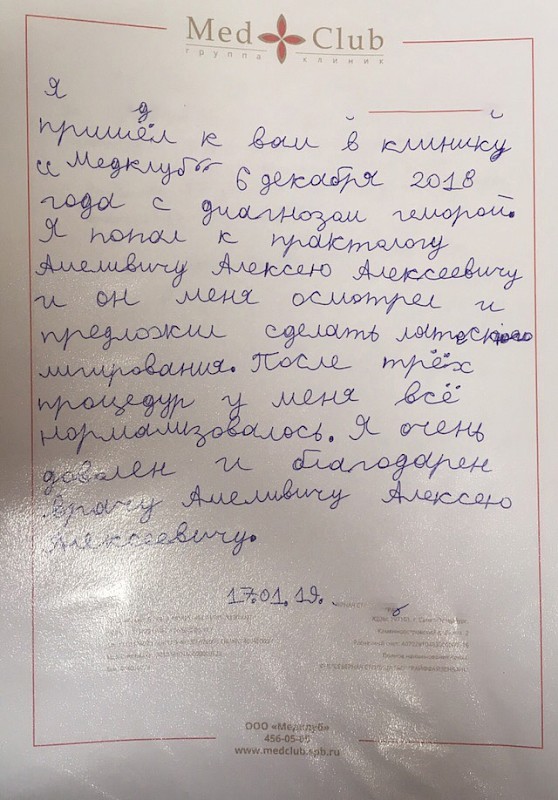 Med Club
группа клиник
Я
пришёл к вам в клинику
"Медклуб" 6 декабря 2018
года с диагнозом геморой.
Я попал к практологу
Амеливичу Алексею Алексеевичу
и он меня осмотрел и
предложил сделать
лигирования. После трёх
процедур у меня всё
нормализовалось. Я очень
доволен и благодарен
врачу Амеливичу Алексею
Алексеевичу.
17.01.19.
ООО «Медклуб»
www.medclub.spb.ru